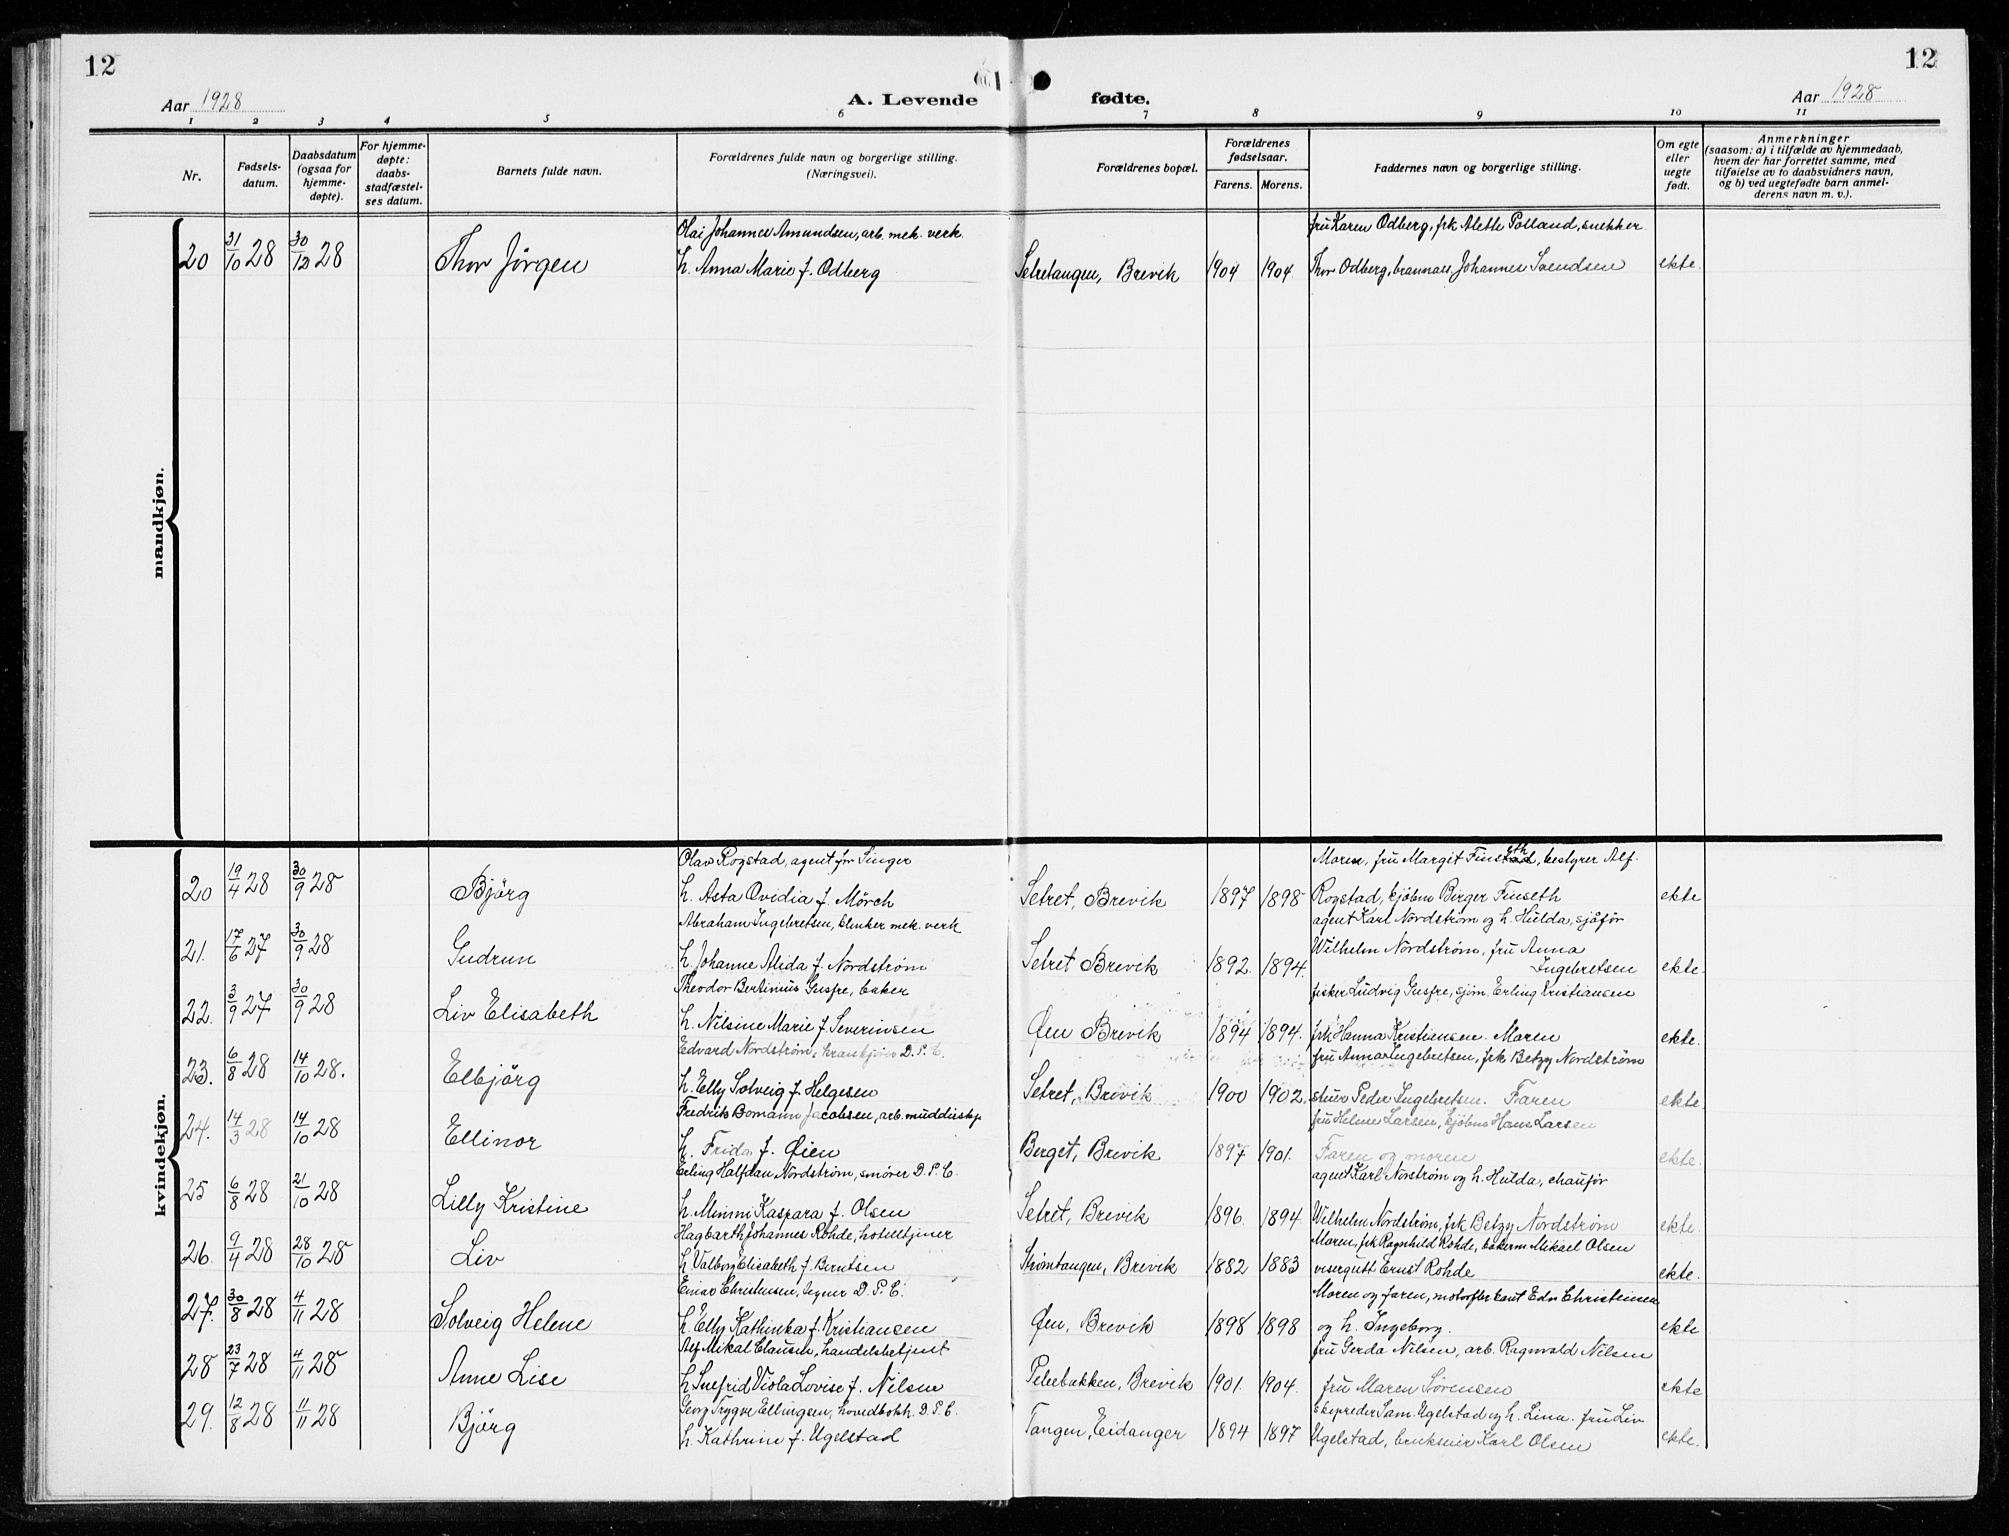 12
12
Aar 1928
A. Levende fødte.
Aar 1928
1 2 3 4 5 6 7 8 9 10 11
Nr.
Fødsels-
datum.
Daabsdatum
(ogsaa for
hjemme-
døpte).
For hjemme-
døpte:
daabs-
stadfæstel-
ses datum.
Barnets fulde navn.
Forældrenes fulde navn og borgerlige stilling.
(Næringsvei).
Forældrenes bopæl.
Forældrenes
fødselsaar.
Farens. Morens.
Faddernes navn og borgerlige stilling.
Om egte
eller
uegte
født.
Anmerkninger
(saasom: a) i tilfælde av hjemmedaab,
hvem der har forrettet samme, med
tilføielse av to daabsvidners navn,
og b) ved uegtefødte barn anmel-
derens navn m. v.).
mandkjøn.
Olai Johannes Amundsen, arb. mek. verk. fru Karen Odberg, frk Alette Polland, snekker
20 31/10 28 30/12 28 Thor Jørgen h. Anna Marie f. Odberg Setretangen, Brevik 1904 1904. Thor Odberg, Johannes Svendsen ekte.
kvindekjøn.
Olav Rogstad, agent for Singer Moren, fru Margit Finseth, bestyrer Alf.
20 19/4 28 30/9 28 Bjørg h. Asta Ovidia f. Mørch Setret, Brevik 1897 1898 Rogstad, kjøbm Birger Finseth ekte
Abraham Ingebretsen, klinker mek. verk agent Karl Nordstrøm og h. Hulda, sjåfør
21. 17/6 27 30/9 28 Gudrun h. Johanne Alida f. Nordstrøm Setret Brevik 1892. 1894. Wilhelm Nordstrøm, fru Anna
Ingebretsen ekte.
Theodor Bertinius Gusfre, baker fisker Ludvig Gusfre, sjøm. Erling Kristiansen
22. 3/9 27 30/9 28 Liv Elisabeth h. Nilsine Marie f. Severinsen Øen Brevik 1894 1894. frk Hanna Kristiansen. Moren ekte.
Edvard Nordstrøm, krankjører D.P.C. fru Anna Ingebretsen, frk Betzy Nordstrøm
23. 6/8 28 14/10 28. Elbjørg h. Elly Solveig f. Helgesen Setret, Brevik 1900 1902. stuer Peder Ingebretsen. Faren ekte.
Fredrik Bomann Jacobsen, arb. muddersk. fru Helene Larsen, kjøbm Hans Larsen
24. 14/3 28 14/10 28 Ellinor h. Frida f. Øien Berget, Brevik 1897 1901. Faren og moren ekte.
Erling Halfdan Nordstrøm, smører D.P.C. agent Karl Norstrøm og h. Hulda, chaufør
25 6/8 28 21/10 28 Lilly Kristine h. Mimmi Kaspara f. Olsen Setret, Brevik 1896. 1894. Wilhelm Nordstrøm, frk Betzy Nordstrøm ekte.
Hagbarth Johannes Rohde, hotelltjener Moren, frk Ragnhild Rohde, bakerm Mikael Olsen
26. 9/4 28 28/10 28 Liv h. Valborg Elisabeth f. Berntsen Strømtangen, Brevik 1882 1883 visergutt Ernst Rohde ekte.
Einar Christensen, D.P.C. Moren og faren, motorfabrikant Edv Christensen
27. 30/8 28 4/11 28 Solveig Helene h. Elly Kathinka f. Kristiansen Øen, Brevik 1898 1898 og h. Ingeborg. ekte
Alf Mikal Clausen, handelsbetjent fru Gerda Nilsen, arb. Ragnvald Nilsen
28 23/7 28 4/11 28 Anne Lise h. Snefrid Viola Lovise f. Nilsen Brevik 1901. 1904. fru Maren Sørensen ekte
Georg Trygve Ellingsen, hovedbokh. D.P.C. skipsreder Sam. Ugelstad og h. Lina. fru Liv
29. 12/8 28 11/11 28 Bjørg h. Kathrine f. Ugelstad Tangen, Eidanger 1894 1897 Ugelstad, brukseier Karl Olsen ekte.